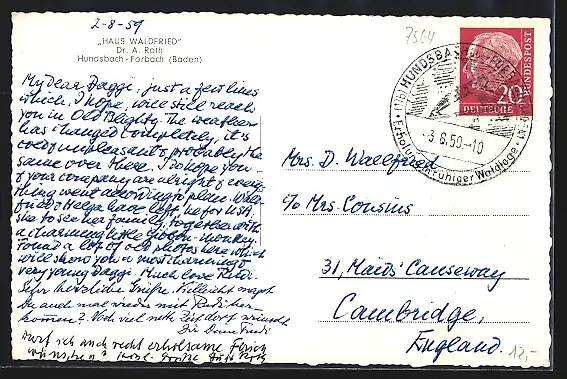 2-8-59
„HAUS WALDFRIED"
Dr. A. Roth
Hundsbach-Forbach (Baden)
My dear Daggi, just a few lines
which, I hope, will still reach
you in Old Blighty. The weather
has changed completely, it's
cold unpleasant & probably the
same over there. I do hope you
& your company are alright & every-
thing went according to plan.
fried & Helga have left, he for USA,
she to see her family, together with
a charming little monkey.
Found a lot of old photos here which
will show you a most charming &
very young Daggi. Much love Rudi.
Sehr herzliche Grüße. Vielleicht magst
Du auch mal wieder mit Rudi her-
kommen? Noch viel nette Zeit dort wünscht
Dir Deine
Darf ich auch recht erholsame Ferien
wünschen? Herzl. Grüße
7564
(17b) HUNDSBACH
-3.8.59.-10
Erholung in ruhiger Waldlage
20
DEUTSCHE
BUNDESPOST
Mrs. D. Wallfried
c/o Mrs. Cousins
31, Maids' Causeway
Cambridge,
England.
12,-